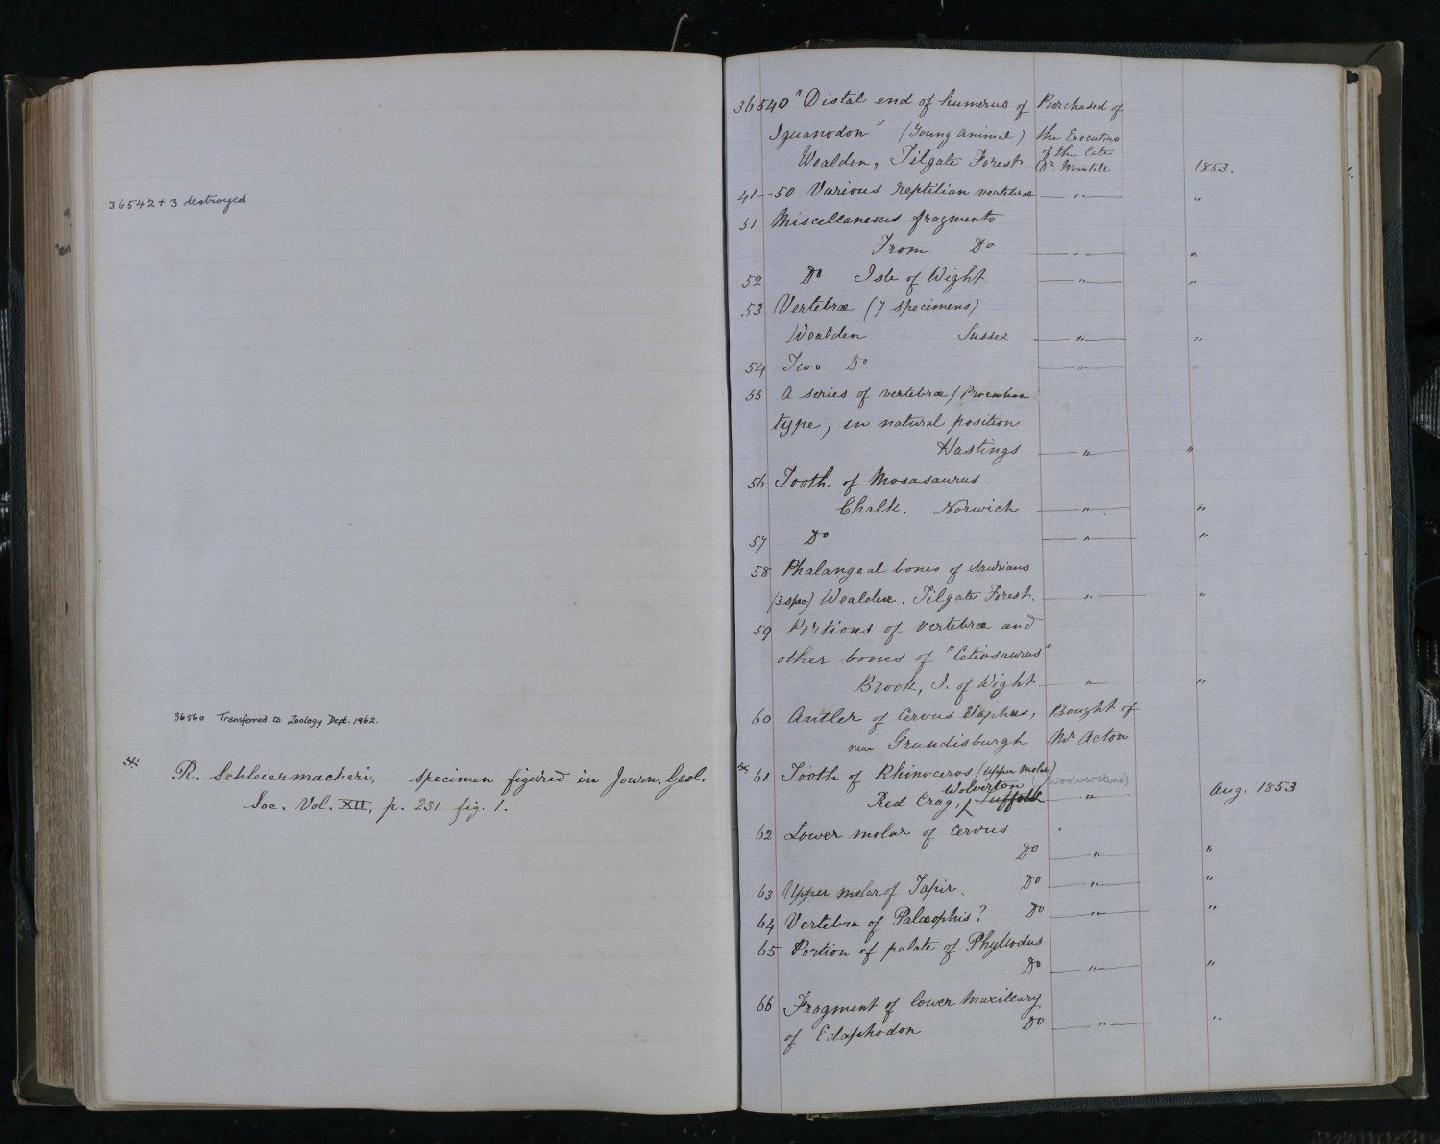 36542+3 destroyed
36560 Transferred to Zoology Dept. 1962.
* R. Schleiermacheri, specimen figured in Journ. Geol.
Soc. Vol. XII, p. 231 fig. 1.
36540 "Distal end of humerus of Purchased of
Iguanodon" (Young animal) the Executors
of the late
Wealden, Tilgate Forest Dr. Mantell 1853.
41--50 Various reptilian vertebrae — " — "
51 Miscellaneous fragments
From Do — " — "
52 Do Isle of Wight — " — "
53 Vertebræ (7 specimens)
Wealden Sussex — " — "
54 Two Do — " — "
55 A series of vertebræ (Procœlian
type, in natural position
Hastings — " — "
56 Tooth of Mosasaurus
Chalk. Norwich — " — "
57 Do — " — "
58 Phalangeal bones of Saurians
(3 spec) Wealden. Tilgate Forest. — " — "
59 Portions of vertebræ and
other bones of "Cetiosaurus"
Brook, I. of Wight — " — "
60 Antler of Cervus Elaphus, Bought of
near Grundisburgh Mr Acton
* 61 Tooth of Rhinoceros (upper molar)
Wolverton (Woolverstone)
Red Crag, Suffolk — " — Aug. 1853
62 Lower molar of Cervus
Do — " — "
63 Upper molar of Tapir. Do — " — "
64 Vertebra of Palæophis? Do — " — "
65 Portion of palate of Phyllodus
Do — " — "
66 Fragment of lower Maxillary
of Edaphodon Do — " — "